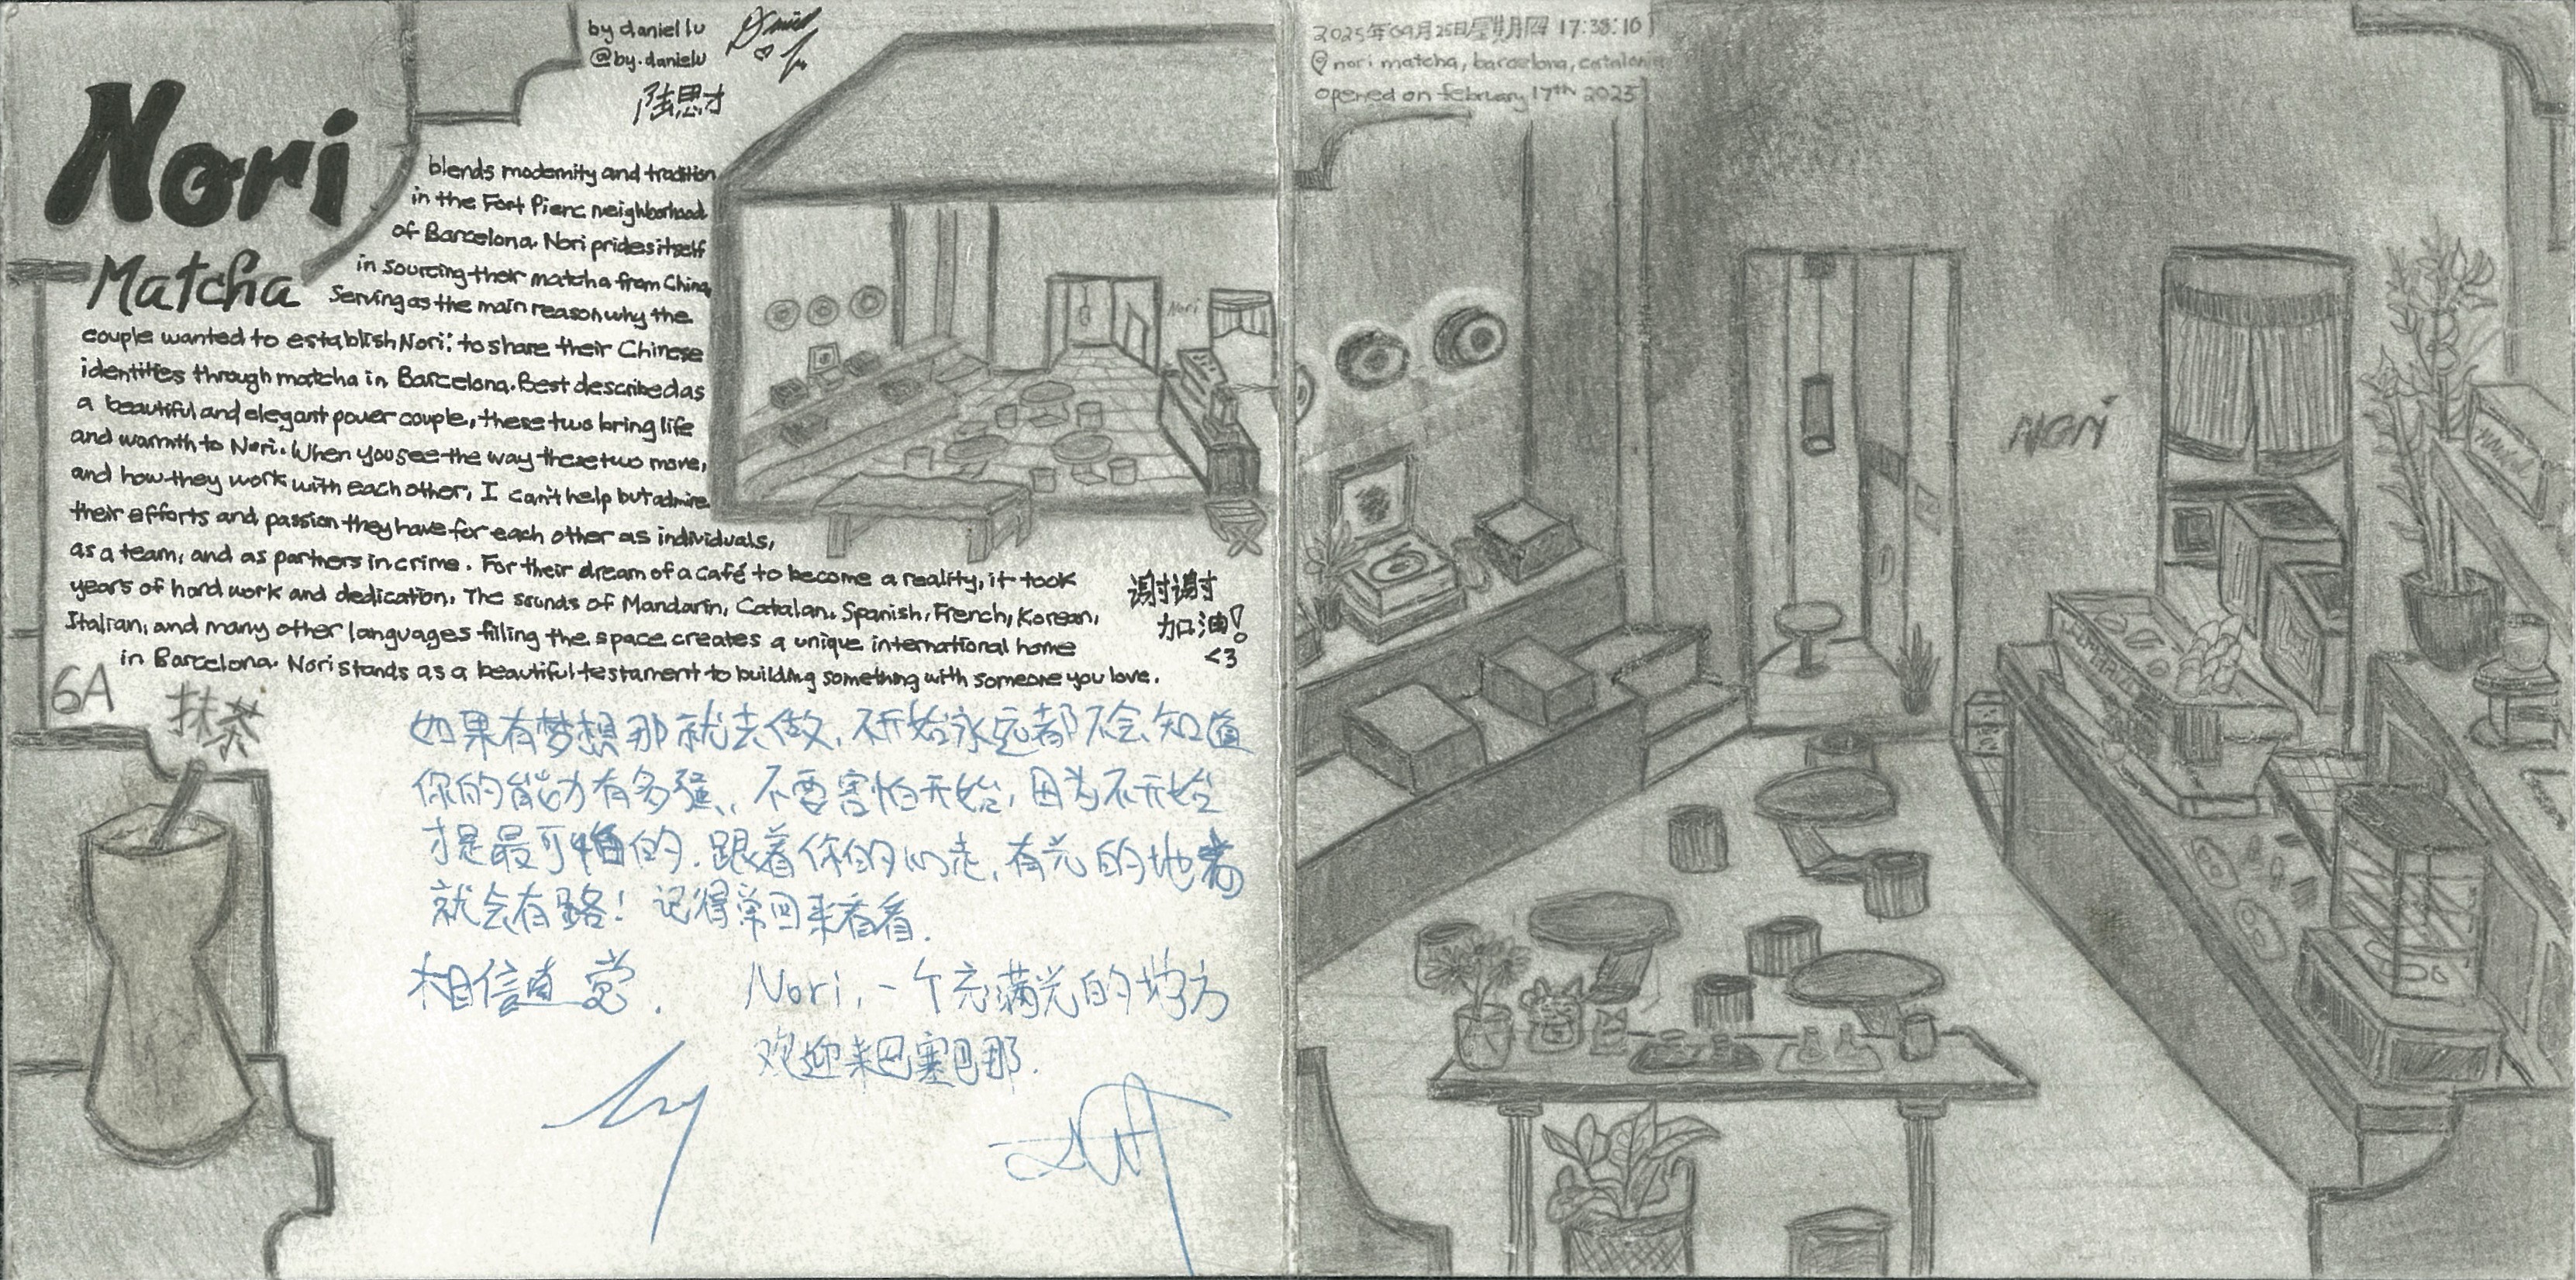 by daniel lu
@by.danielu
陆思才
Nori
Matcha
blends modernity and tradition
in the Fort Pienc neighborhood
of Barcelona. Nori prides itself
in sourcing their matcha from China,
Serving as the main reason why the
couple wanted to establish Nori: to share their Chinese
identities through matcha in Barcelona. Best described as
a beautiful and elegant power couple, these two bring life
and warmth to Nori. When you see the way these two move,
and how they work with each other, I can't help but admire
their efforts and passion they have for each other as individuals,
as a team, and as partners in crime. For their dream of a café to become a reality, it took
years of hard work and dedication. The sounds of Mandarin, Catalan, Spanish, French, Korean,
Italian, and many other languages filling the space creates a unique international home
in Barcelona. Nori stands as a beautiful testament to building something with someone you love.
谢谢
加油!
<3
6A
抹茶
如果有梦想那就去做, 不开始永远都不会知道
你的能力有多强, 不要害怕开始, 因为不开始
才是最可怕的. 跟着你的心走, 有光的地方
就会有路! 记得常回来看看.
相信直觉.
Nori, 一个充满光的地方
欢迎来巴塞罗那.
Nori
2025年09月25日星期四 17:38:10
nori matcha, barcelona, catalonia
opened on february 17th 2025
NORI